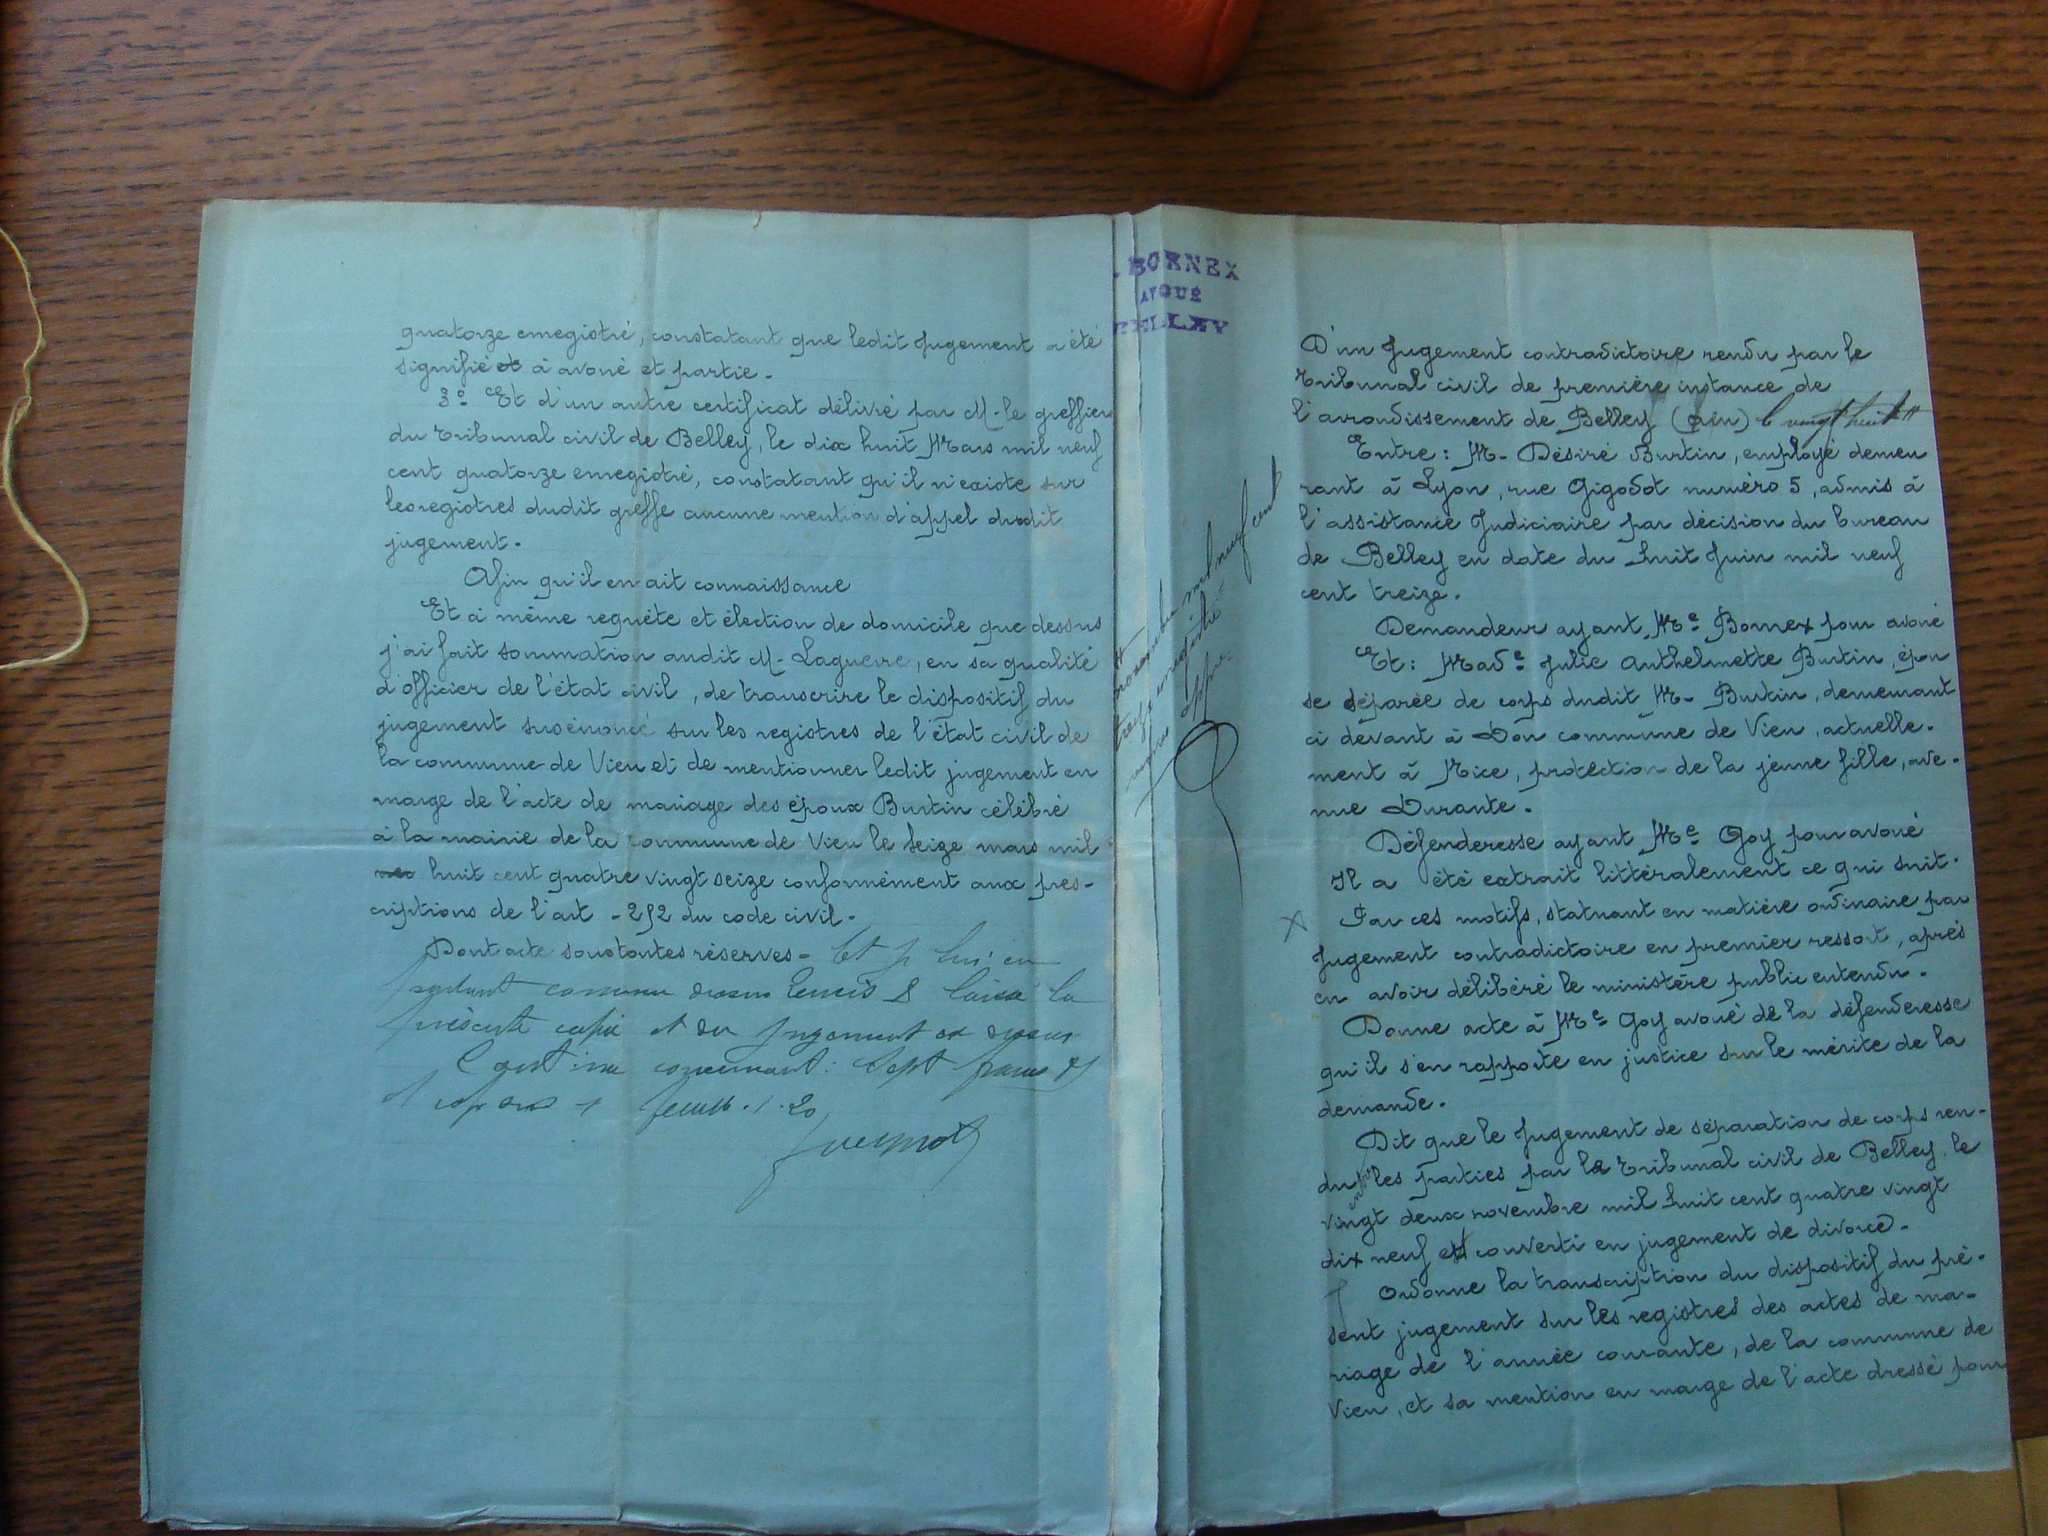 quatorze enregistré, constatant que ledit Jugement a été
signifié à avoué et partie.
3o Et d'un autre certificat délivré par M. le greffier
du tribunal civil de Belley, le dix huit Mars mil neuf
cent quatorze enregistré, constatant qu'il n'existe sur
les registres dudit greffe aucune mention d'appel dudit
jugement.
Afin qu'il en ait connaissance
Et à même requête et élection de domicile que dessus
j'ai fait sommation audit M. Laguerre, en sa qualité
d'officier de l'état civil, de transcrire le dispositif du
jugement susénoncé sur les registres de l'état civil de
la commune de Vieu et de mentionner ledit jugement en
marge de l'acte de mariage des époux Burtin célébré
à la mairie de la commune de Vieu le seize mars mil
huit cent quatre vingt seize conformément aux pres-
criptions de l'art - 252 du code civil.
Dont acte sous toutes réserves - Et lui en
parlant comme dessus remis & laissé la
présente copie et du Jugement dessus
Coût: concernant: Sept francs
1.20
. BORNEX
AVOUÉ
BELLEY
novembre mil neuf cent
treize enregistré
D'un Jugement contradictoire rendu par le
tribunal civil de première instance de
l'arrondissement de Belley (Ain) le vingt huit
Entre: M. Désiré Burtin, employé demeu
rant à Lyon, rue Gigodot numéro 5, admis à
l'assistance Judiciaire par décision du bureau
de Belley en date du huit Juin mil neuf
cent treize.
Demandeur ayant Me Bornex pour avoué
Et: Made Julie Anthelmette Burtin, épou
se séparée de corps dudit M. Burtin, demeurant
ci devant à Don commune de Vieu, actuelle-
ment à Nice, protection de la jeune fille, ave-
nue Durante.
Défenderesse ayant Me Goy pour avoué
Il a été extrait littéralement ce qui suit.
Par ces motifs, statuant en matière ordinaire par
Jugement contradictoire en premier ressort, après
en avoir délibéré le ministère public entendu.
Donne acte à Me Goy avoué de la défenderesse
qu'il s'en rapporte en justice sur le mérite de la
demande.
Dit que le Jugement de séparation de corps ren-
du entre les parties par le tribunal civil de Belley, le
vingt deux novembre mil huit cent quatre vingt
dix neuf est converti en jugement de divorce.
Ordonne la transcription du dispositif du pré-
sent jugement sur les registres des actes de ma-
riage de l'année courante, de la commune de
Vieu, et sa mention en marge de l'acte dressé pour